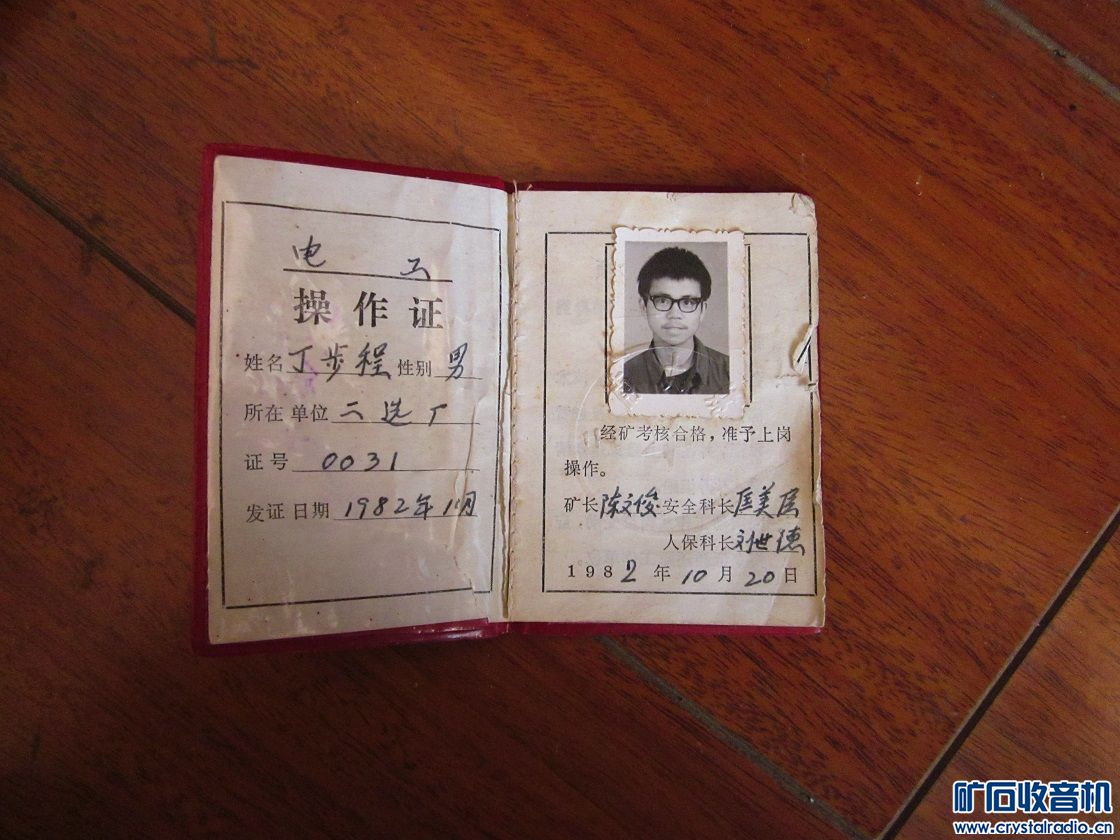 电 工
操作证
姓名 丁步程 性别 男
所在单位 二选厂
证号 0031
发证日期 1982年11月
经矿考核合格，准予上岗
操作。
矿长 陈文俊 安全科长 匡美
人保科长 刘世德
1982年10月20日
矿石收音机
www.crystalradio.cn